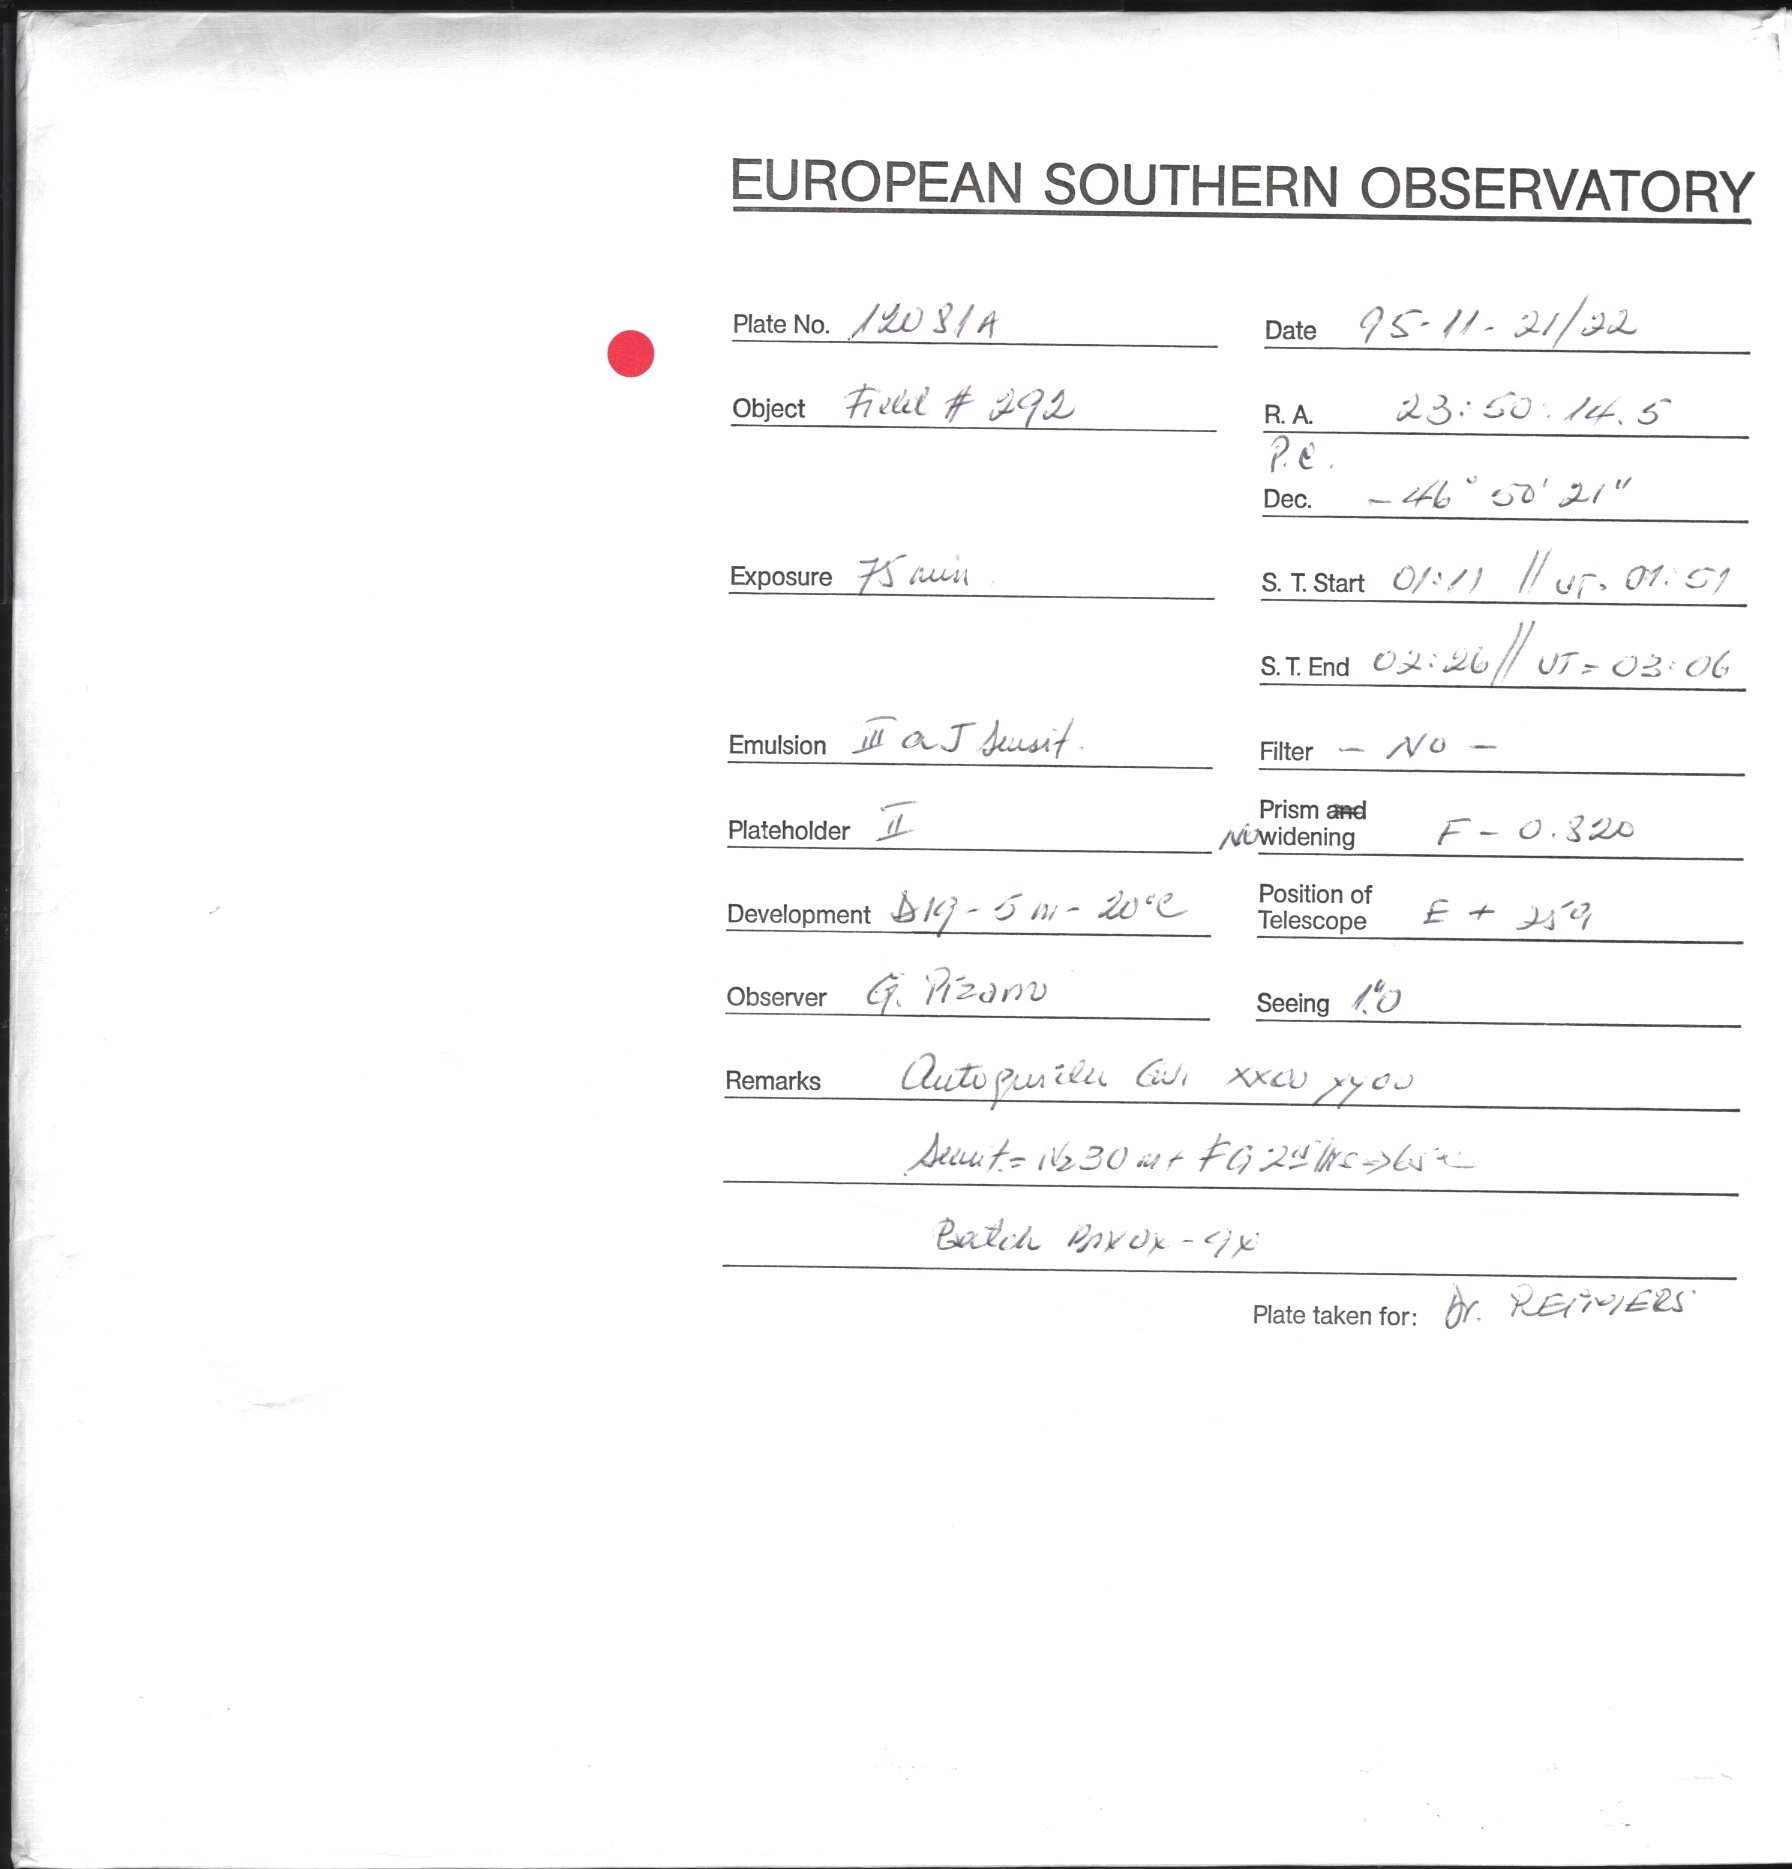 EUROPEAN SOUTHERN OBSERVATORY
Plate No. 12081A Date 95-11-21/22
Object Field # 292 R. A. 23:50:14.5
P.C.
Dec. -46° 50' 21"
Exposure 75 min. S. T. Start 01:11 // UT= 01:51
S. T. End 02:26 // UT= 03:06
Emulsion III a J Sensit. Filter - NO -
Plateholder II Prism and NO widening F - 0.820
Development D19 - 5 m - 20°C Position of Telescope E + 259
Observer G. Pizarro Seeing 1."0
Remarks Autoguider xx00 yy00
Sensit.= N2 30 m + FG
Batch
Plate taken for: Dr. REIMERS